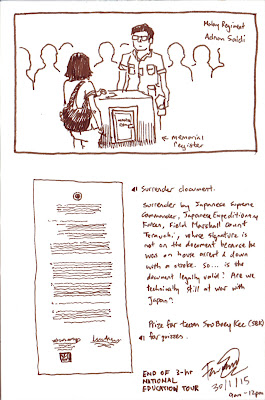 Malay Regiment
Adnan Saidi
← memorial
register
Surrender document.
Surrender by Japanese Supreme
Commander, Japanese Expeditionary
Forces, Field Marshall Count
Terauchi, whose signature is
not on the document because he
was on house arrest & down
with a stroke. So... is the
document legally valid? Are we
technically still at war with
Japan?
Prize for team Soo Boey Kee (SBK)
for quizzes.
END OF 3-hr
NATIONAL
EDUCATION TOUR
30/1/15
9am-12pm